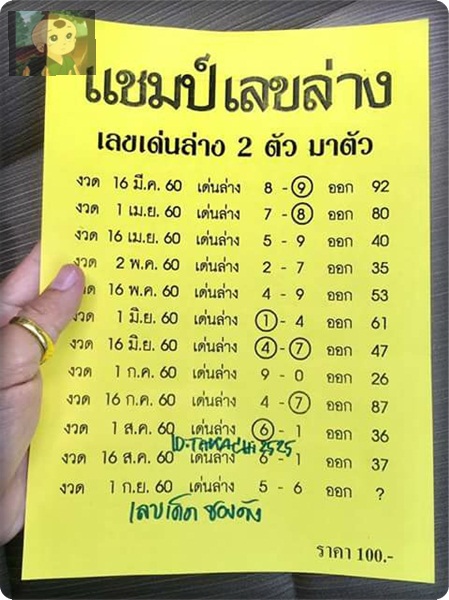 แชมป์เลขล่าง
เลขเด่นล่าง 2 ตัว มาตัว
งวด 16 มี.ค. 60 เด่นล่าง 8 - 9 ออก 92
งวด 1 เม.ย. 60 เด่นล่าง 7 - 8 ออก 80
งวด 16 เม.ย. 60 เด่นล่าง 5 - 9 ออก 40
งวด 2 พ.ค. 60 เด่นล่าง 2 - 7 ออก 35
งวด 16 พ.ค. 60 เด่นล่าง 4 - 9 ออก 53
งวด 1 มิ.ย. 60 เด่นล่าง 1 - 4 ออก 61
งวด 16 มิ.ย. 60 เด่นล่าง 4 - 7 ออก 47
งวด 1 ก.ค. 60 เด่นล่าง 9 - 0 ออก 26
งวด 16 ก.ค. 60 เด่นล่าง 4 - 7 ออก 87
งวด 1 ส.ค. 60 เด่นล่าง 6 - 1 ออก 36
ID-TAKACHI2525
งวด 16 ส.ค. 60 เด่นล่าง 6 - 1 ออก 37
งวด 1 ก.ย. 60 เด่นล่าง 5 - 6 ออก ?
เลขเด็ด ซองดัง
ราคา 100.-